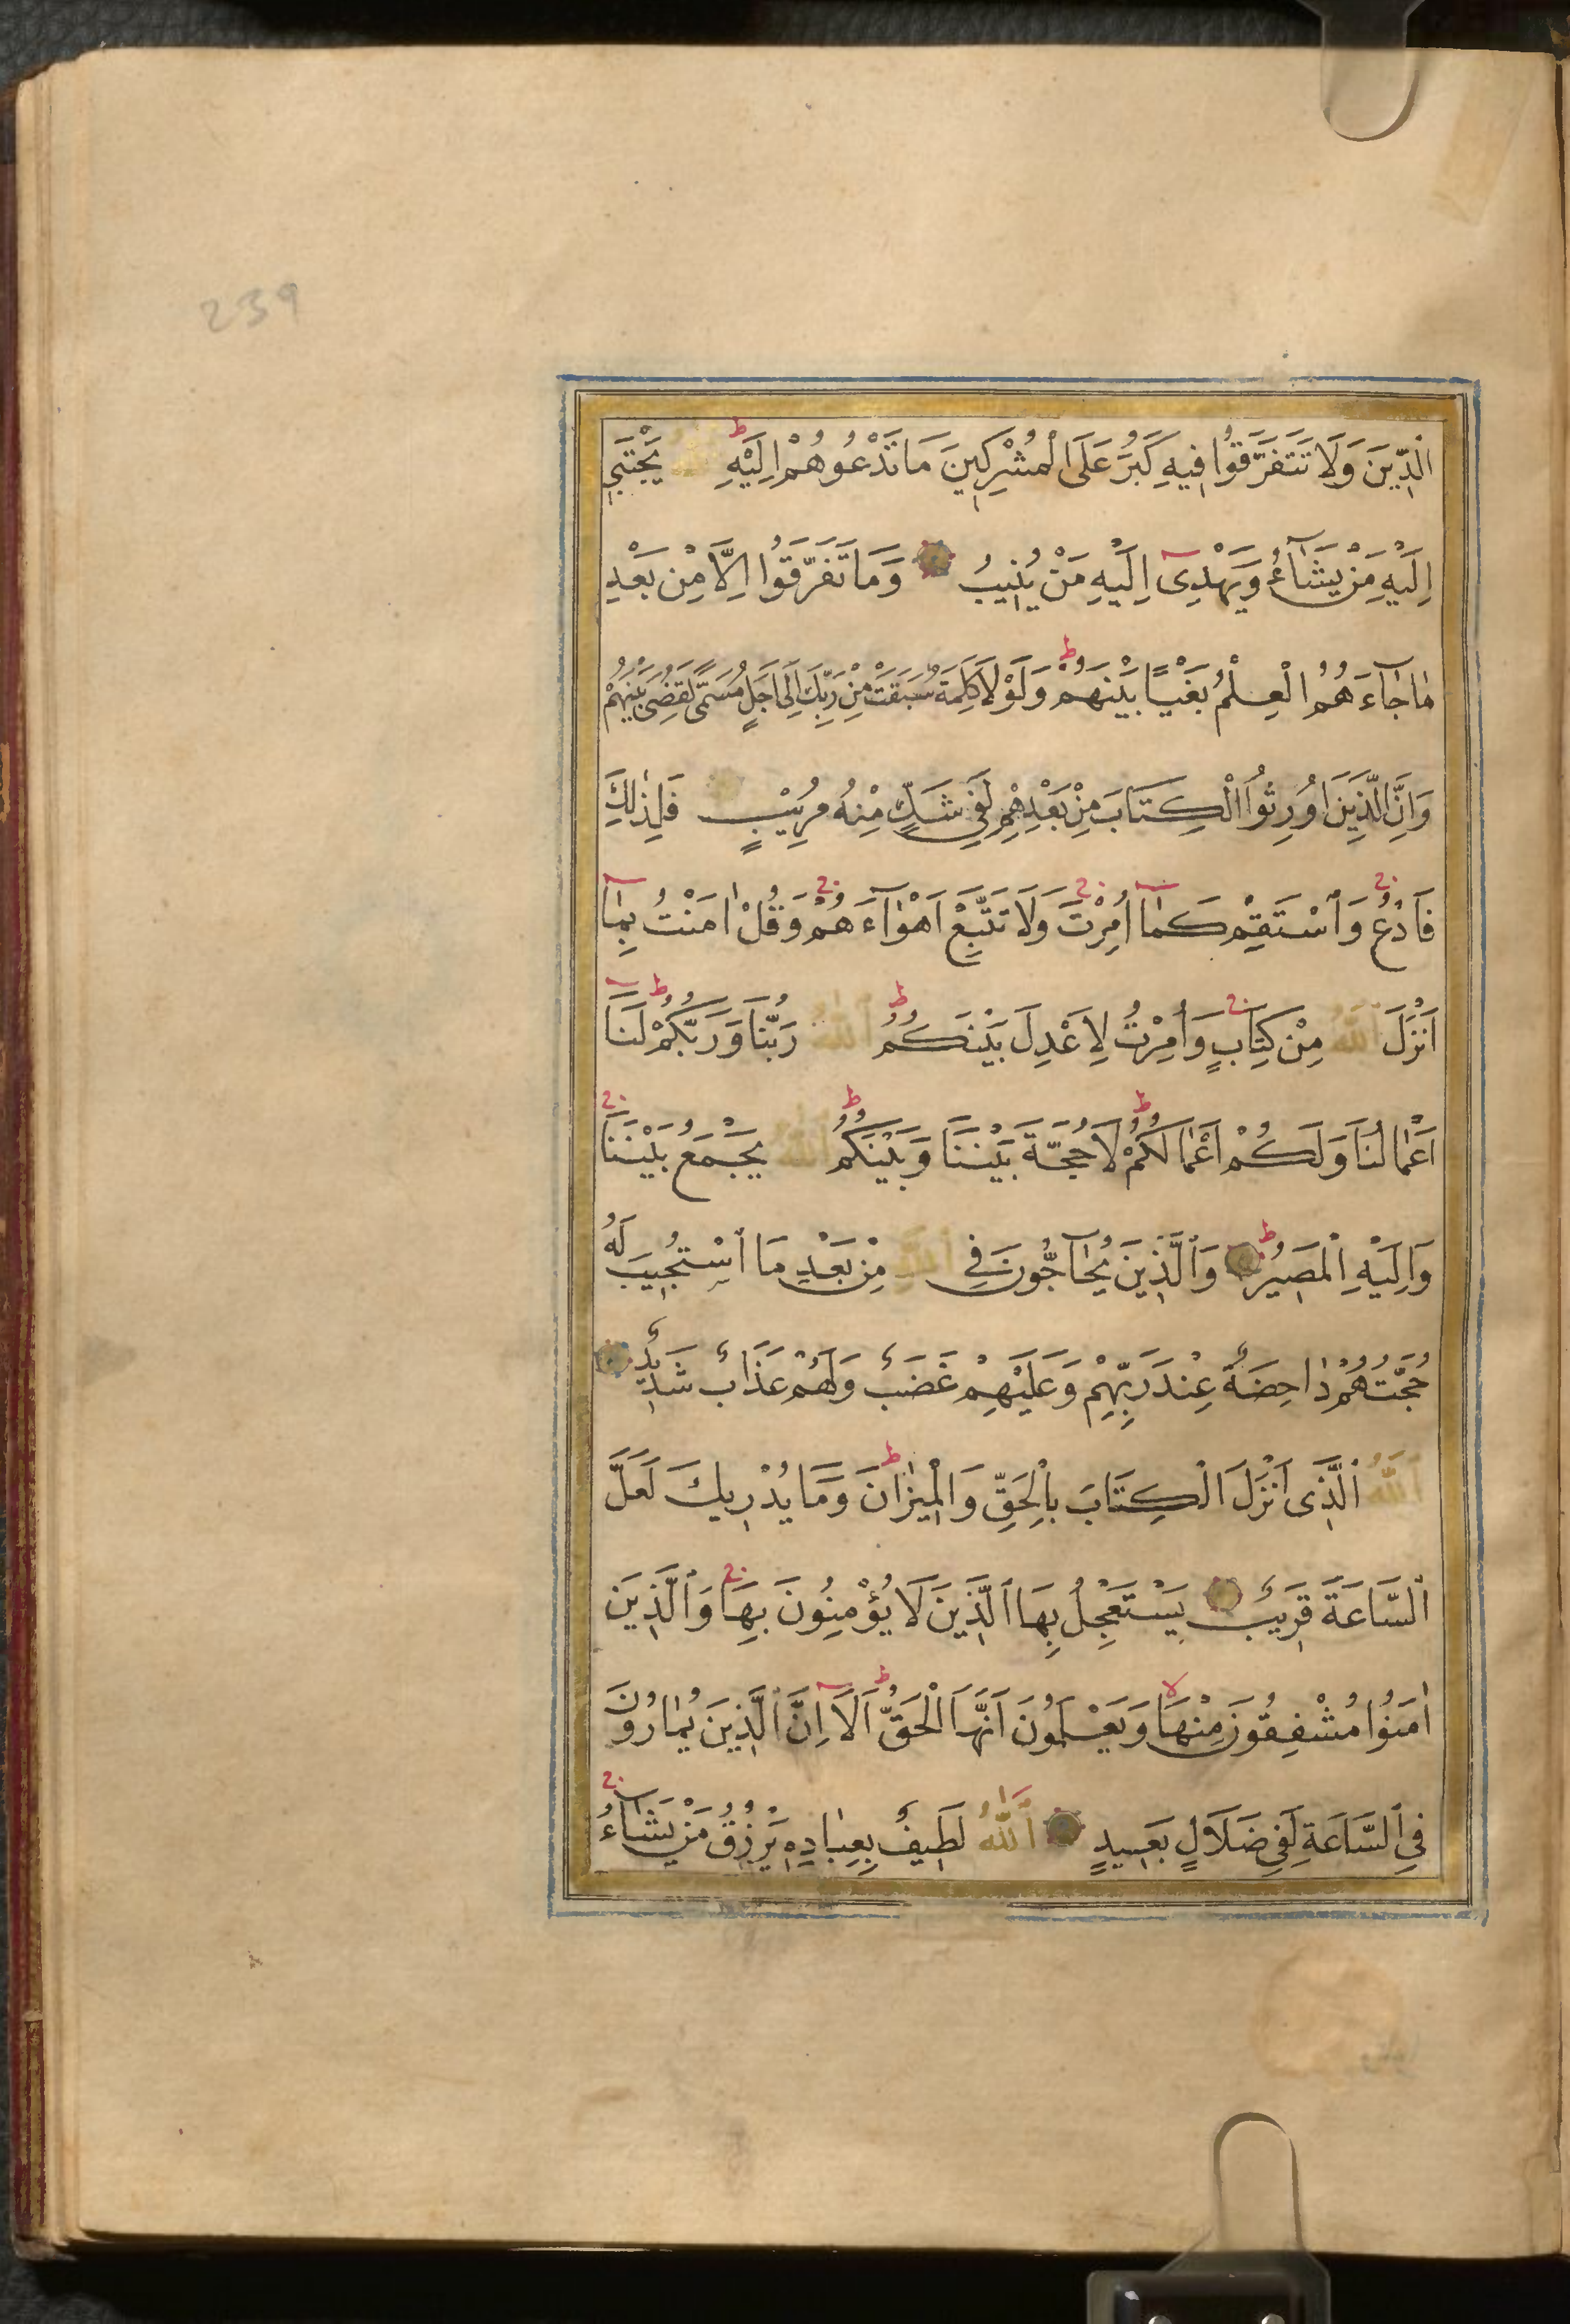 239
الدِّينَ وَلَا تَتَفَرَّقُوا فِيهِ كَبُرَ عَلَى الْمُشْرِكِينَ مَا تَدْعُوهُمْ اِلَيْهِ ط اَللّٰهُ يَجْتَبِي
اِلَيْهِ مَنْ يَشَآءُ وَيَهْدِى اِلَيْهِ مَنْ يُنِيبُ وَمَا تَفَرَّقُوا اِلَّا مِنْ بَعْدِ
مَا جَآءَهُمُ الْعِلْمُ بَغْيًا بَيْنَهُمْ ط وَلَوْلَا كَلِمَةٌ سَبَقَتْ مِنْ رَبِّكَ اِلٰى اَجَلٍ مُسَمًّى لَقُضِىَ بَيْنَهُمْ
وَاِنَّ الَّذِينَ اُورِثُوا الْكِتَابَ مِنْ بَعْدِهِمْ لَفِى شَكٍّ مِنْهُ مُرِيبٍ فَلِذٰلِكَ
فَادْعُ ج وَاسْتَقِمْ كَمَا اُمِرْتَ ج وَلَا تَتَّبِعْ اَهْوَآءَهُمْ ج وَقُلْ اٰمَنْتُ بِمَا
اَنْزَلَ اللّٰهُ مِنْ كِتَابٍ ج وَاُمِرْتُ لِاَعْدِلَ بَيْنَكُمُ ط اَللّٰهُ رَبُّنَا وَرَبُّكُمْ ط لَنَا
اَعْمَالُنَا وَلَكُمْ اَعْمَالُكُمْ ط لَا حُجَّةَ بَيْنَنَا وَبَيْنَكُمُ ط اَللّٰهُ يَجْمَعُ بَيْنَنَا ج
وَاِلَيْهِ الْمَصِيرُ ط وَالَّذِينَ يُحَآجُّونَ فِى اللّٰهِ مِنْ بَعْدِ مَا اسْتُجِيبَ لَهُ
حُجَّتُهُمْ دَاحِضَةٌ عِنْدَ رَبِّهِمْ وَعَلَيْهِمْ غَضَبٌ وَلَهُمْ عَذَابٌ شَدِيدٌ
اَللّٰهُ الَّذِى اَنْزَلَ الْكِتَابَ بِالْحَقِّ وَالْمِيزَانَ ط وَمَا يُدْرِيكَ لَعَلَّ
السَّاعَةَ قَرِيبٌ يَسْتَعْجِلُ بِهَا الَّذِينَ لَا يُؤْمِنُونَ بِهَا ج وَالَّذِينَ
اٰمَنُوا مُشْفِقُونَ مِنْهَا لا وَيَعْلَمُونَ اَنَّهَا الْحَقُّ ط اَلَا اِنَّ الَّذِينَ يُمَارُونَ
فِى السَّاعَةِ لَفِى ضَلَالٍ بَعِيدٍ اَللّٰهُ لَطِيفٌ بِعِبَادِهِ يَرْزُقُ مَنْ يَشَآءُ ج